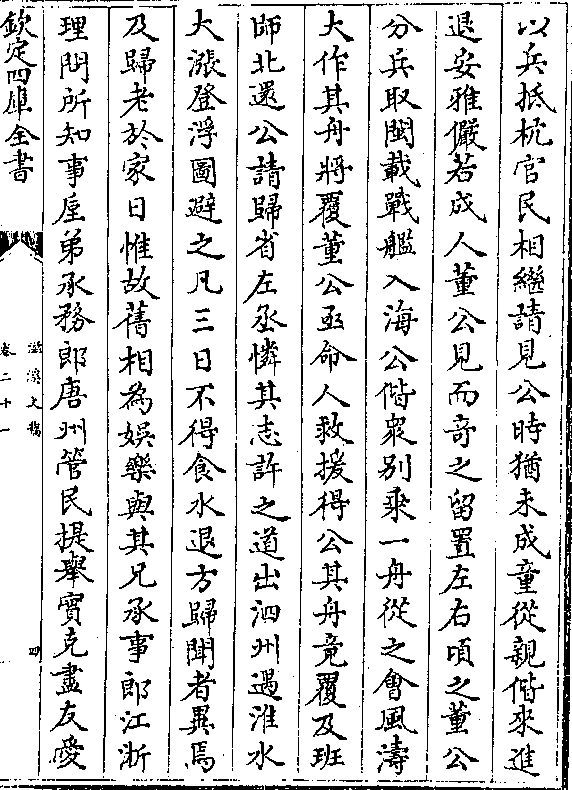 以兵抵杭官民相繼請見公時猶未成童從親偕來進
退安雅儼若成人董公見而竒之留置左右頃之董公
分兵取閩載戰艦入海公偕衆别乗一舟從之會風濤
大作其舟將覆董公亟命人救援得公其舟竟覆及班
師北還公請歸省左丞憐其志許之道出泗州遇淮水
大漲登浮圖避之凡三日不得食水退方歸聞者異焉
及歸老於家日惟故舊相為娯樂與其兄承事郎江浙
理問所知事垕弟承務郎唐州管民提舉實克盡友愛
欽定四庫全書
滋溪文稿
卷二十一
四